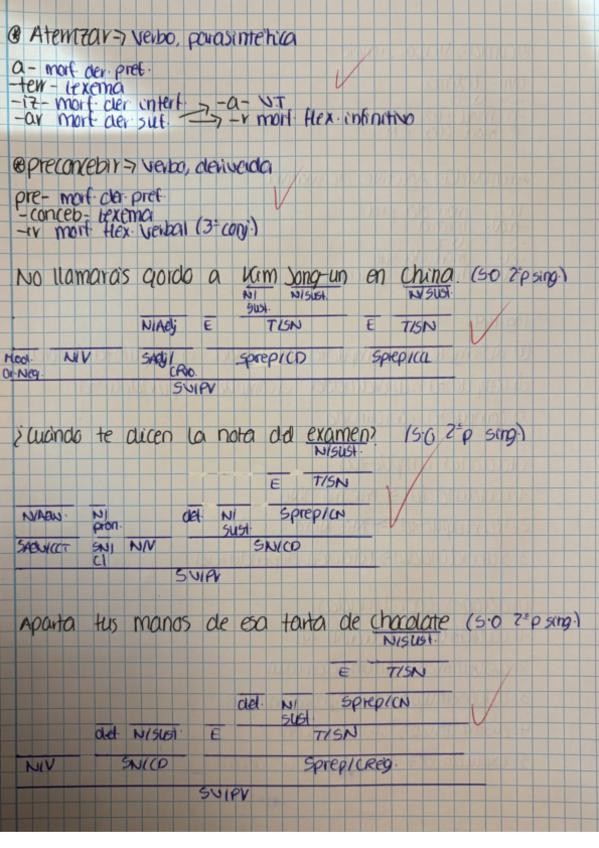 Aterrizar => verbo, parasintética
a- morf. der. pref.
-terr- lexema
-iz- morf. der. interf. -a- VT
-ar morf der suf. -r morf flex. infinitivo
preconcebir => verbo, derivada
pre- morf. der pref.
-conceb- lexema
-ir morf flex verbal (3ª conj.)
No llamarás gordo a Kim Jong-un en China. (S.O 2ª p sing.)
N/ N/sust. N/sust.
sust.
N/Adj E T/SN E T/SN
Mod. N/V SAdj/ Sprep/CD Sprep/CCL
Or.Neg. CPvo.
SV/PV
¿Cuándo te dicen la nota del examen? (S.O 2ª p sing.)
N/sust.
E T/SN
N/Adv. N/ det. N/ Sprep/CN
pron. sust.
SAdv/CCT SN/ N/V SN/CD
CI
SV/PV
Aparta tus manos de esa tarta de chocolate (S.O 2ª p sing.)
N/sust.
E T/SN
det. N/ Sprep/CN
sust.
det. N/sust. E T/SN
N/V SN/CD Sprep/CReg.
SV/PV